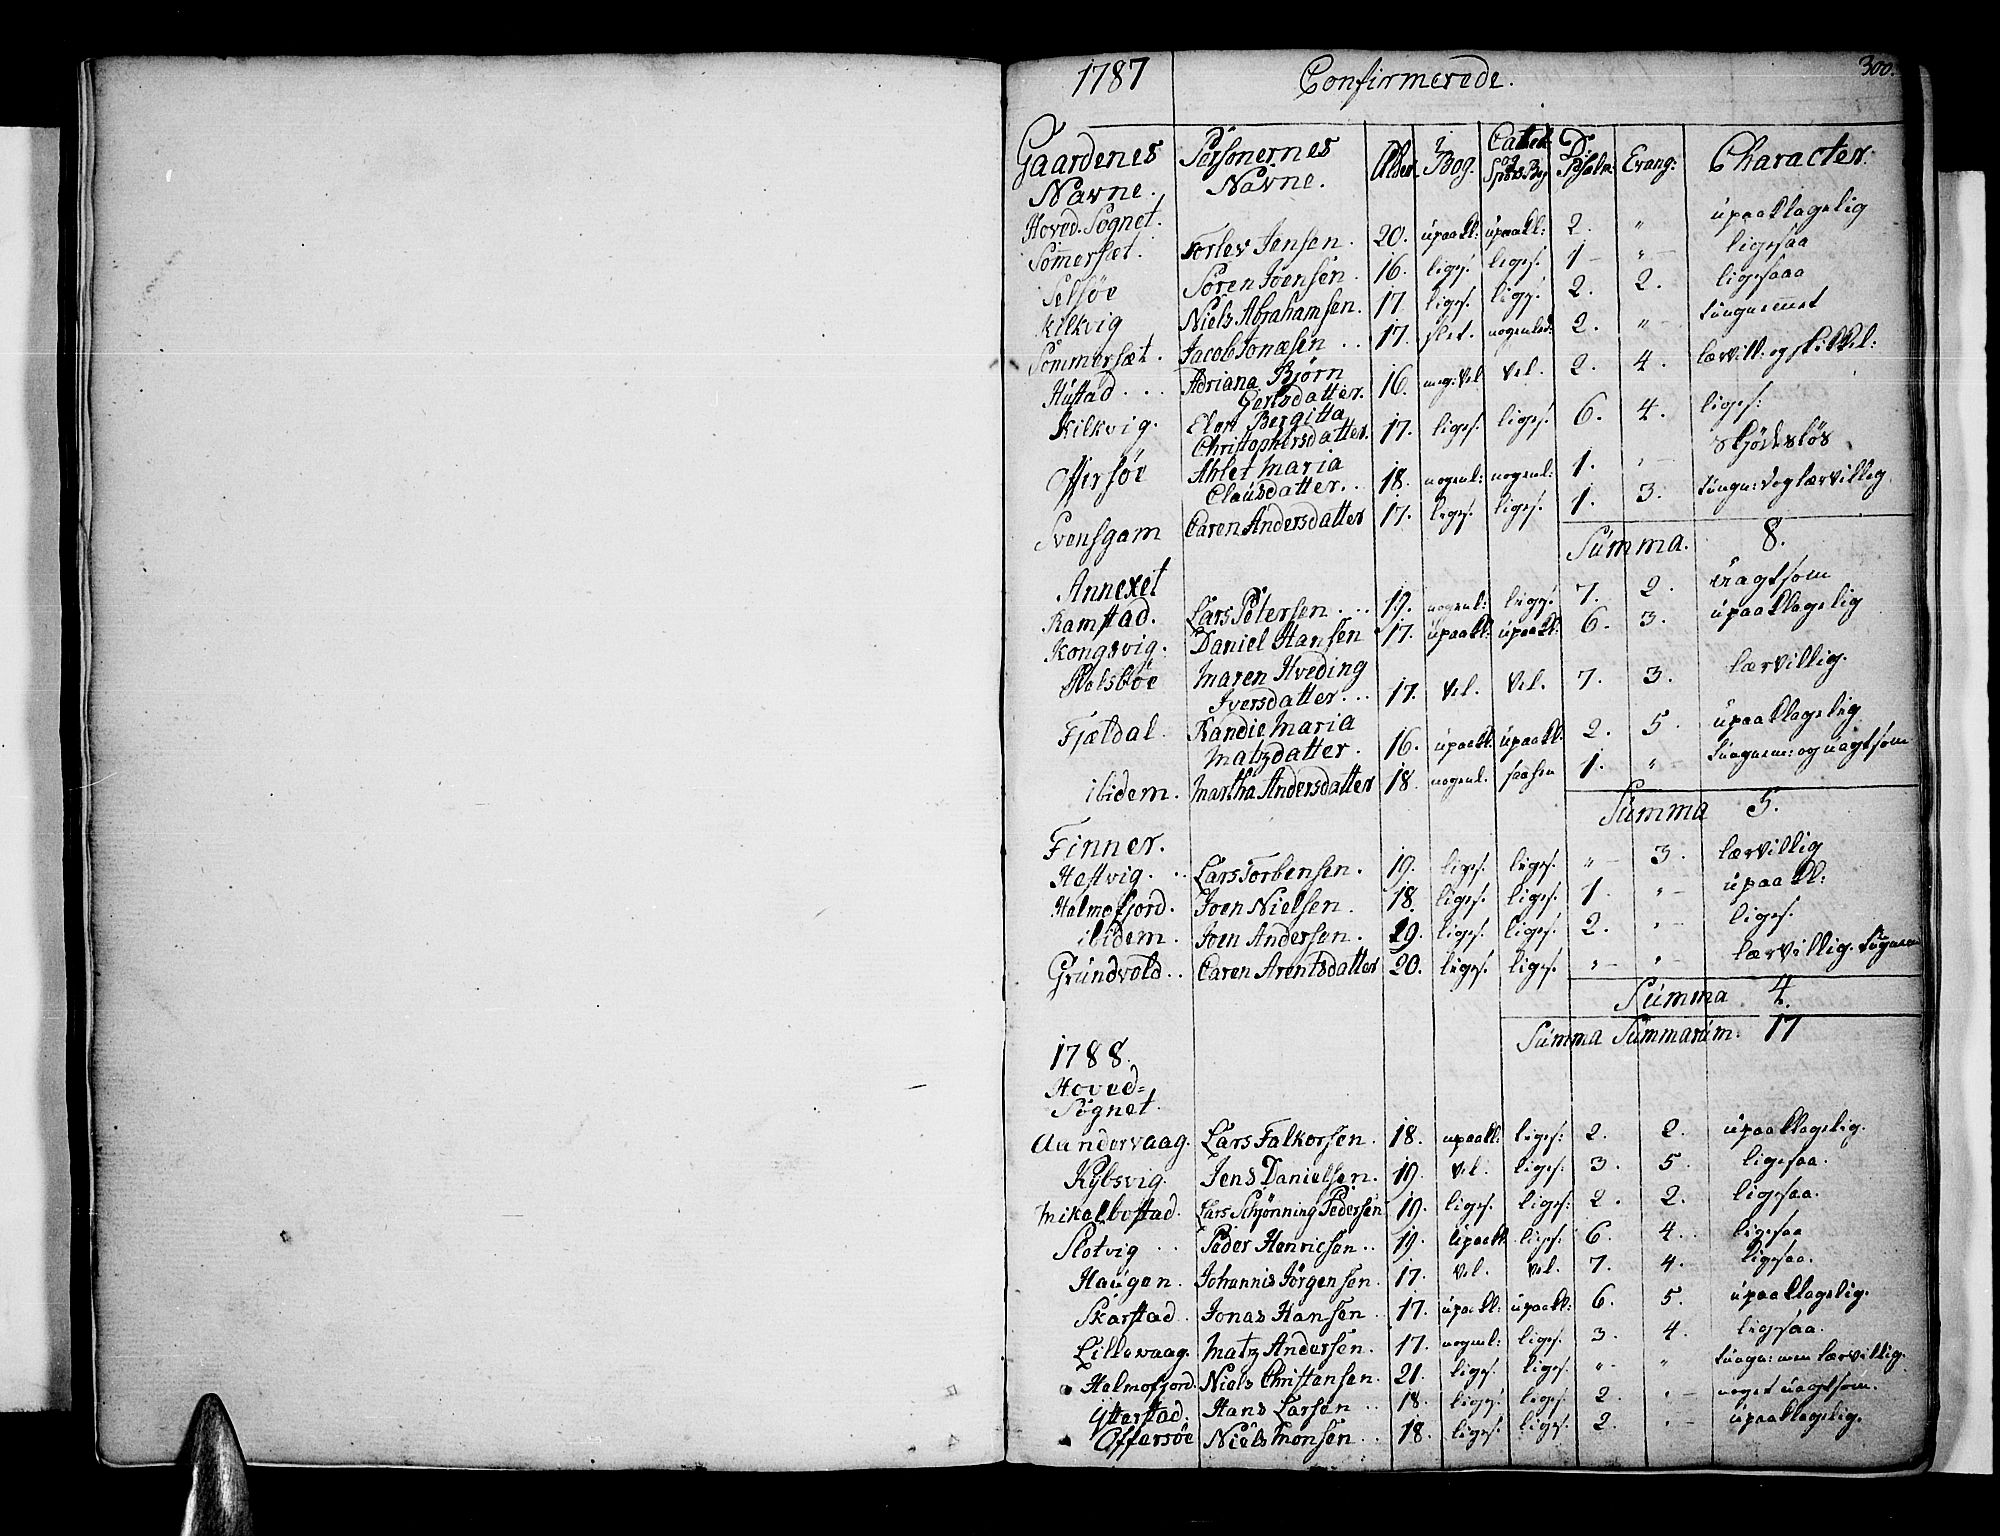 1787 Confirmerede. 300.
Gaardenes Navne. Personernes Navne. Alder. i Bog. Catek: og Spörs Bog D. Psalm: Evang: Character.
Hoved-Sognet. upaaklagelig
Sömersæt. Torlev Jensen. 20. upaakl: upaakl: 2. " ligesaa
Selsöe Sören Joensen. 16. liges. liges. 1 - " - ligesaaa
Kilkvig Niels Abrahamsen. 17. liges. liges. 2. 2. tungnemet
Sömmersæt. Jacob Jonæsen .. 17. slet. nogenled: 2. " -
Hustad ... Adriana Björn Gertsdatter. 16. meg: vel vel. 2. 4. lærvill: og skikkel:
Kilkvig. Elen Bergitta Christophersdatter. 17. liges. liges. 6. 4. liges:
Offersöe Ablet Maria Clausdatter .. 18. nogenl: nogenl: 1. " skjödeslös
Svensgam Caren Andersdatter 17. liges. liges. 1. 3. tungn: dog lærvillig.
Summa. 8.
Annexet
Ramstad. Lars Petersen ... 19. nogenl: liges. 7. 2. uagtsom
Kongsvig. Daniel Hansen 17. upaakl: upaakl: 6. 3. upaaklagelig
Maren Hveding Iversdatter ... 17. vel. vel. 7. 3. lærvillig.
Fjældal. Randie Maria Matzdatter. 16. upaakl: upaakl: 2. 5. upaaklagelig
ibidem. Martha Andersdatter 18. nogenl. saasen 1. " tungnem: og uagtsom
Summa 5.
Finner.
Hæstvig. .. Lars Torbensen. 19. liges. liges. " - 3. lærvillig
Halmofjord. Joen Nielsen. 18. liges. liges. 1. " - upaakl:
ibidem. Joen Andersen. 29. liges. liges. 2. " - liges.
Grundvold .. Caren Arentsdatter 20. liges. liges. " - " - lærvillig. tugnem
Summa. 4.
Summa Summarum. 17
1788.
Hoved=
Sognet.
Aundervaag. Lars Falkorsen. 18. upaakl: liges: 2. 2. upaaklagelig.
Kybsvig. Jens Danielsen. 19. vel. liges: 3. 5. ligesaa.
Mikalbostad. Lars Schjönning Pedersen 19. liges. liges: 2. 2. ligesaa.
Slotvig .. Peder Henricsen .. 19. upaakl. liges: 6. 4. ligesaa
Haugen. Johannis Jörgensen. 17. vel. vel. 7. 4. ligesaa.
Skarstad. Jonas Hansen 17. upaakl: upaakl: 6. 5. upaaklagelig.
Lillevaag. Matz Andersen. 17. nogenl: liges. 3. 4. ligesaa.
Halmofjord. Niels Christansen. 21. liges. liges. " " tungn: men lærvillig.
Ytterstad. Hans Larsen .. 18. liges. liges. 2. " - noget uagtsom.
Offersöe Niels Monsen .. 18. liges. liges. 2. " - upaaklagelig.